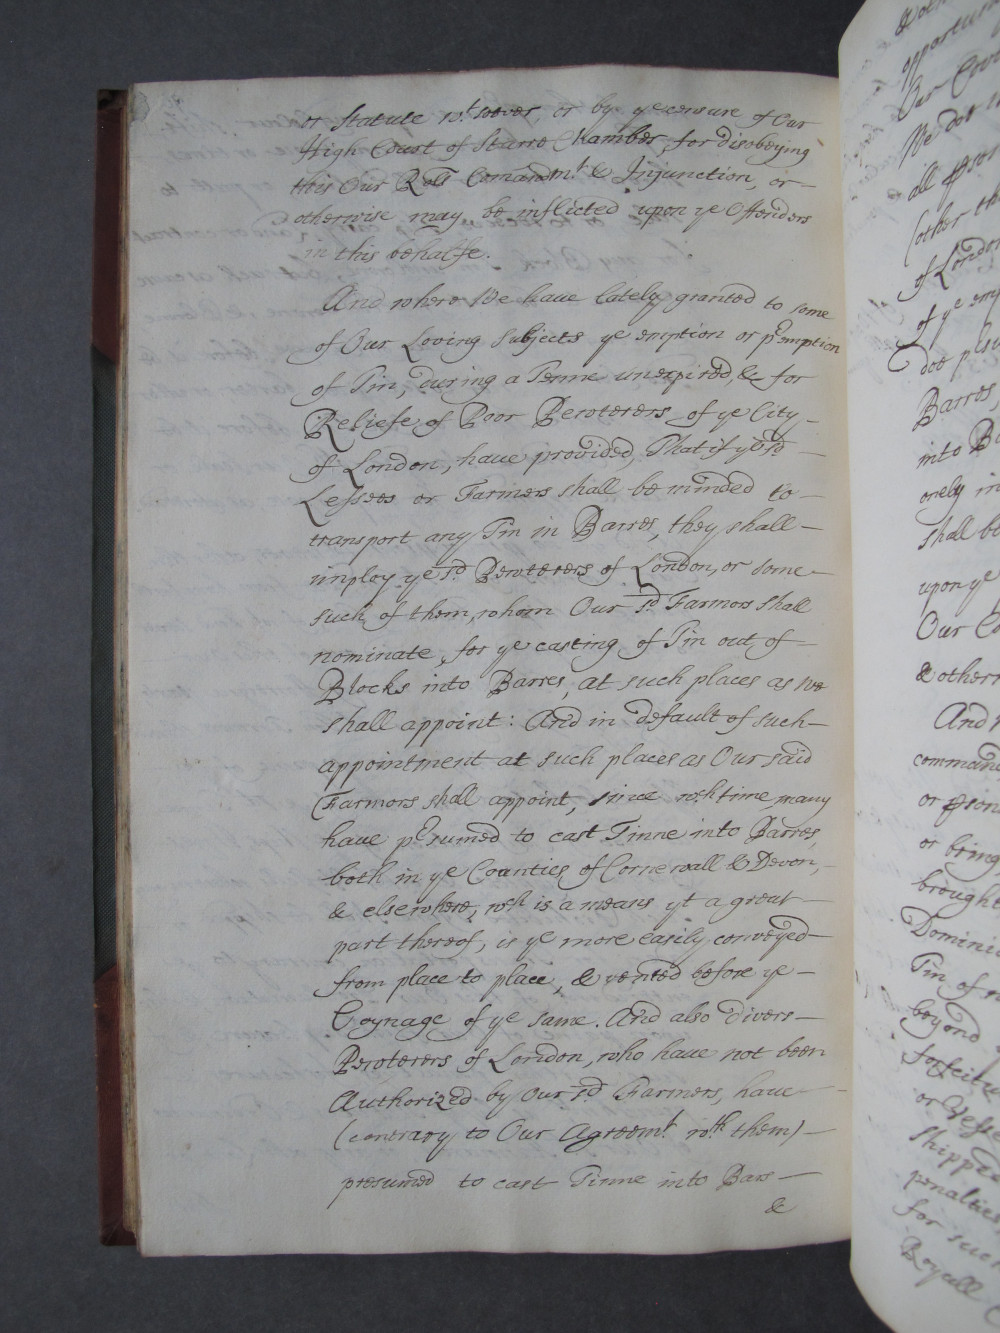 or Statute wt.soever, or by ye censure of Our
High Court of Starre Chamber, for disobeying
this Our Roll Comandmt. & Injunction, or —
otherwise may be inflicted upon ye Offenders
in this behalfe.
And where We have lately granted to some
of Our Loving Subjects ye emption or p'emption
of Tin, during a Terme unexpired, & for
Reliefe of Poor Pewterers of ye City —
of London, have provided, That if ye sd —
Lessees or Farmers shall be minded to —
transport any Tin in Barres, they shall —
imploy ye sd. Pewterers of London, or some —
such of them, whom Our sd Farmors shall
nominate, for ye casting of Tin out of —
Blocks into Barres, at such places as We
shall appoint: And in default of such —
appointment at such places as Our said
Farmors shall appoint, since wch. time many
have p'sumed to cast Tinne into Barres,
both in ye Counties of Cornewall & Devon,
& elsewhere, wch is a means yt a great —
part thereof, is ye more easily conveyed —
from place to place, & vented before ye —
Coynage of ye same. And also divers —
Pewterers of London, who have not been
Authorized by Our sd Farmers, have —
(contrary to Our Agreemt. wth them) —
presumed to cast Tinne into Bars —
&
opportun
Our Cou
We doe
all pson
(other th
of London
of ye emp
doe p'su
Barres,
into B
onely in
shall be
upon ye
Our Co
& other
And
command
or pson
or bring
brought
Domini
Tin of
beyond
forfeitu
or Vesse
shippe
penalties
for such
Royall C